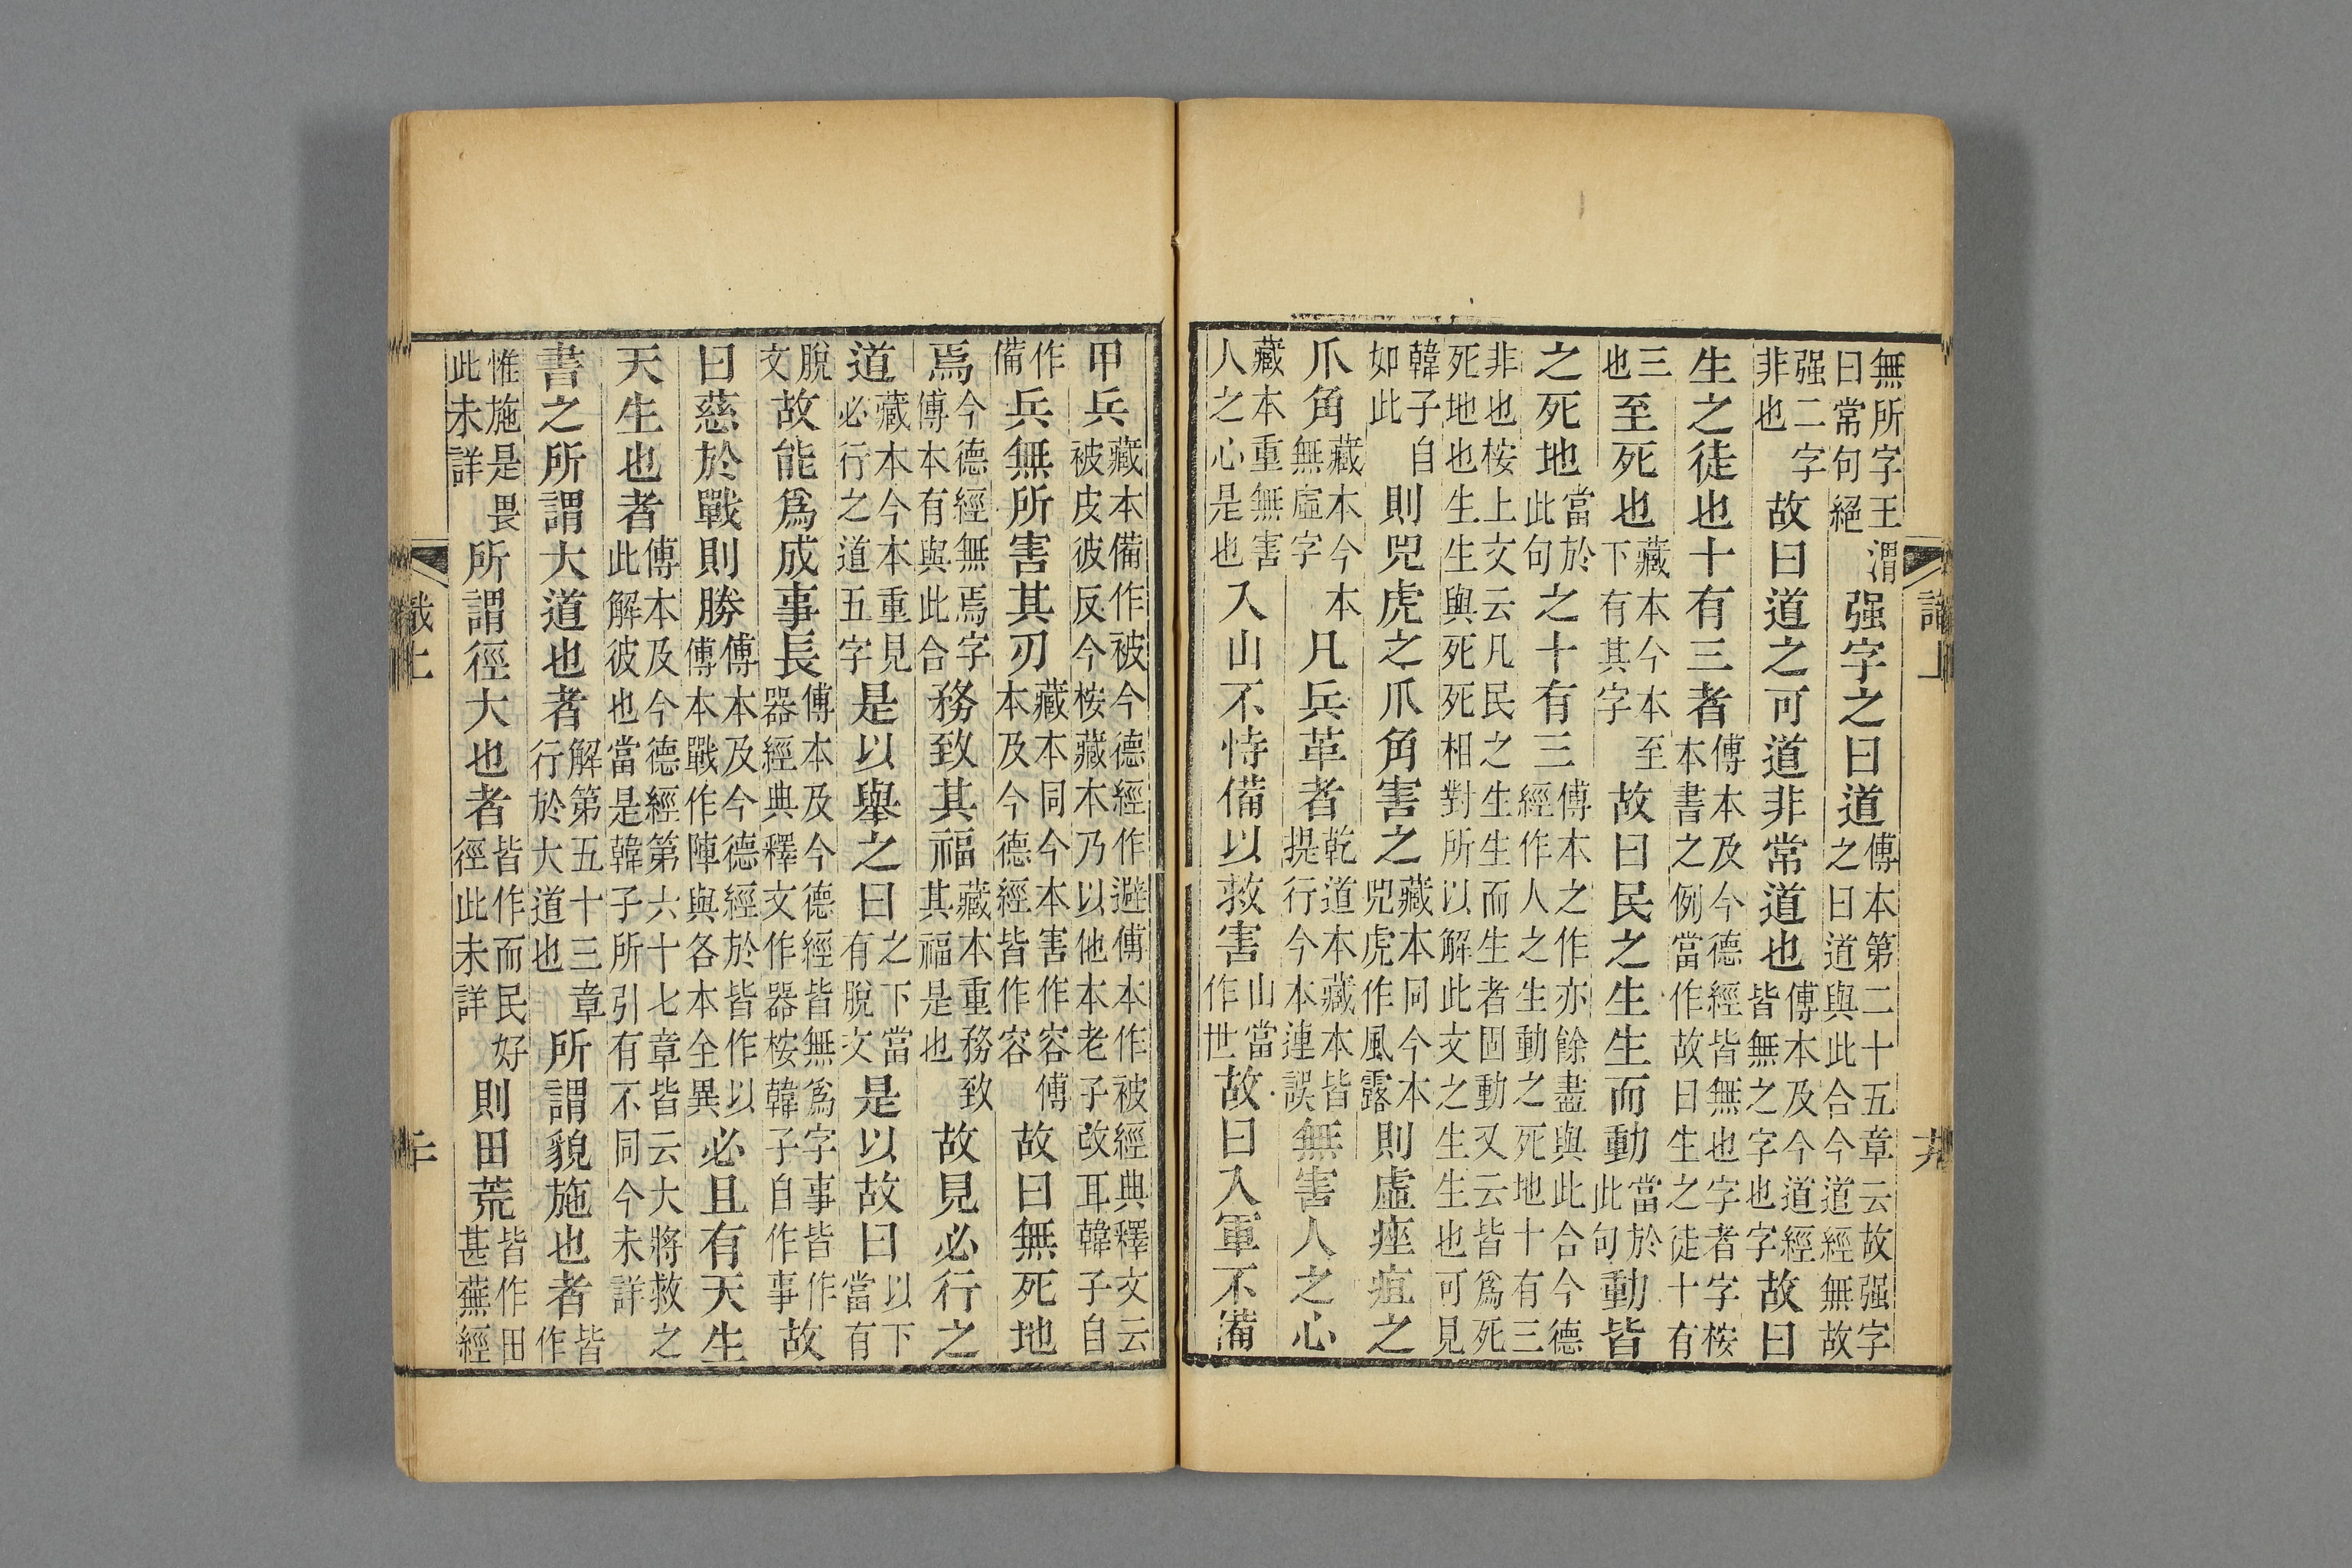 無所字王渭曰常句絕强字之曰道傅本第二十五章云故强字之曰道與此合今道經無故
强二字非也故曰道之可道非常道也傅本及今道經皆無之字也字故曰
生之徒也十有三者傅本及今德經皆無也字者字桉本書之例當作故曰生之徒十有
三也至死也藏本今本至下有其字故曰民之生生而動當於此句動皆
之死地當於此句之十有三傅本之作亦餘盡與此合今德經作人之生動之死地十有三
非也桉上文云凡民之生生而生者固動又云皆爲死死地也生生與死死相對所以解此文之生生也可見
韓子自如此則兕虎之爪角害之藏本同今本兕虎作風露則虛痤疽之
爪角藏本今本無虛字凡兵革者乾道本藏本皆提行今本連誤無害人之心
藏本重無害人之心是也入山不恃備以救害山當作世故曰入軍不備
甲兵藏本備作被今德經作避傅本作被經典釋文云被皮彼反今桉藏本乃以他本老子改耳韓子自
作備兵無所害其刃藏本同今本害作容傅本及今德經皆作容故曰無死地
焉今德經無焉字傅本有與此合務致其福藏本重務致其福是也故見必行之
道藏本今本重見必行之道五字是以舉之曰之下當有脫文是以故曰以下當有
脫文故能爲成事長傅本及今德經皆無爲字事皆作器經典釋文作器桉韓子自作事故
曰慈於戰則勝傅本及今德經於皆作以傅本戰作陣與各本全異必且有天生
天生也者傅本及今德經第六十七章皆云大將救之此解彼也當是韓子所引有不同今未詳
書之所謂大道也者解第五十三章行於大道也所謂貌施也者皆作
惟施是畏此未詳所謂徑大也者皆作而民好徑此未詳則田荒皆作田甚蕪經